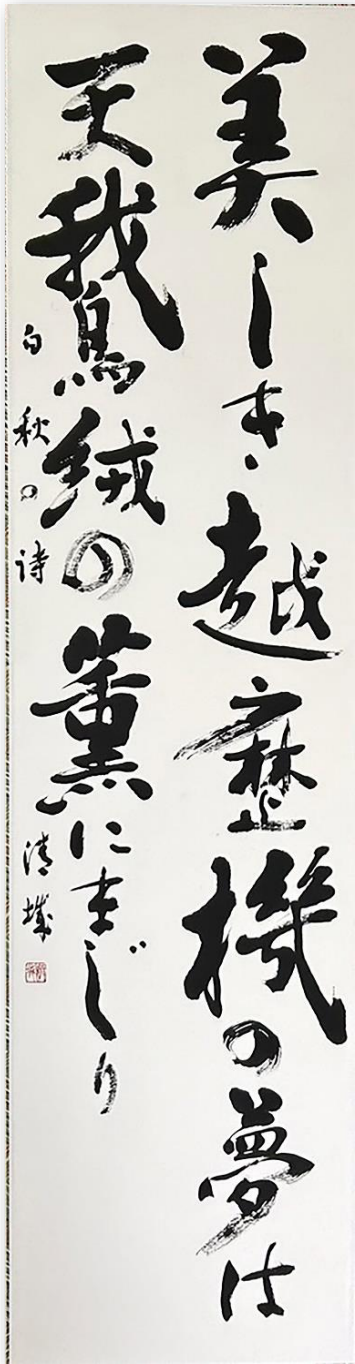 美しき越歴機の夢は
天鵝絨の薫にまじり
白秋の詩
清城